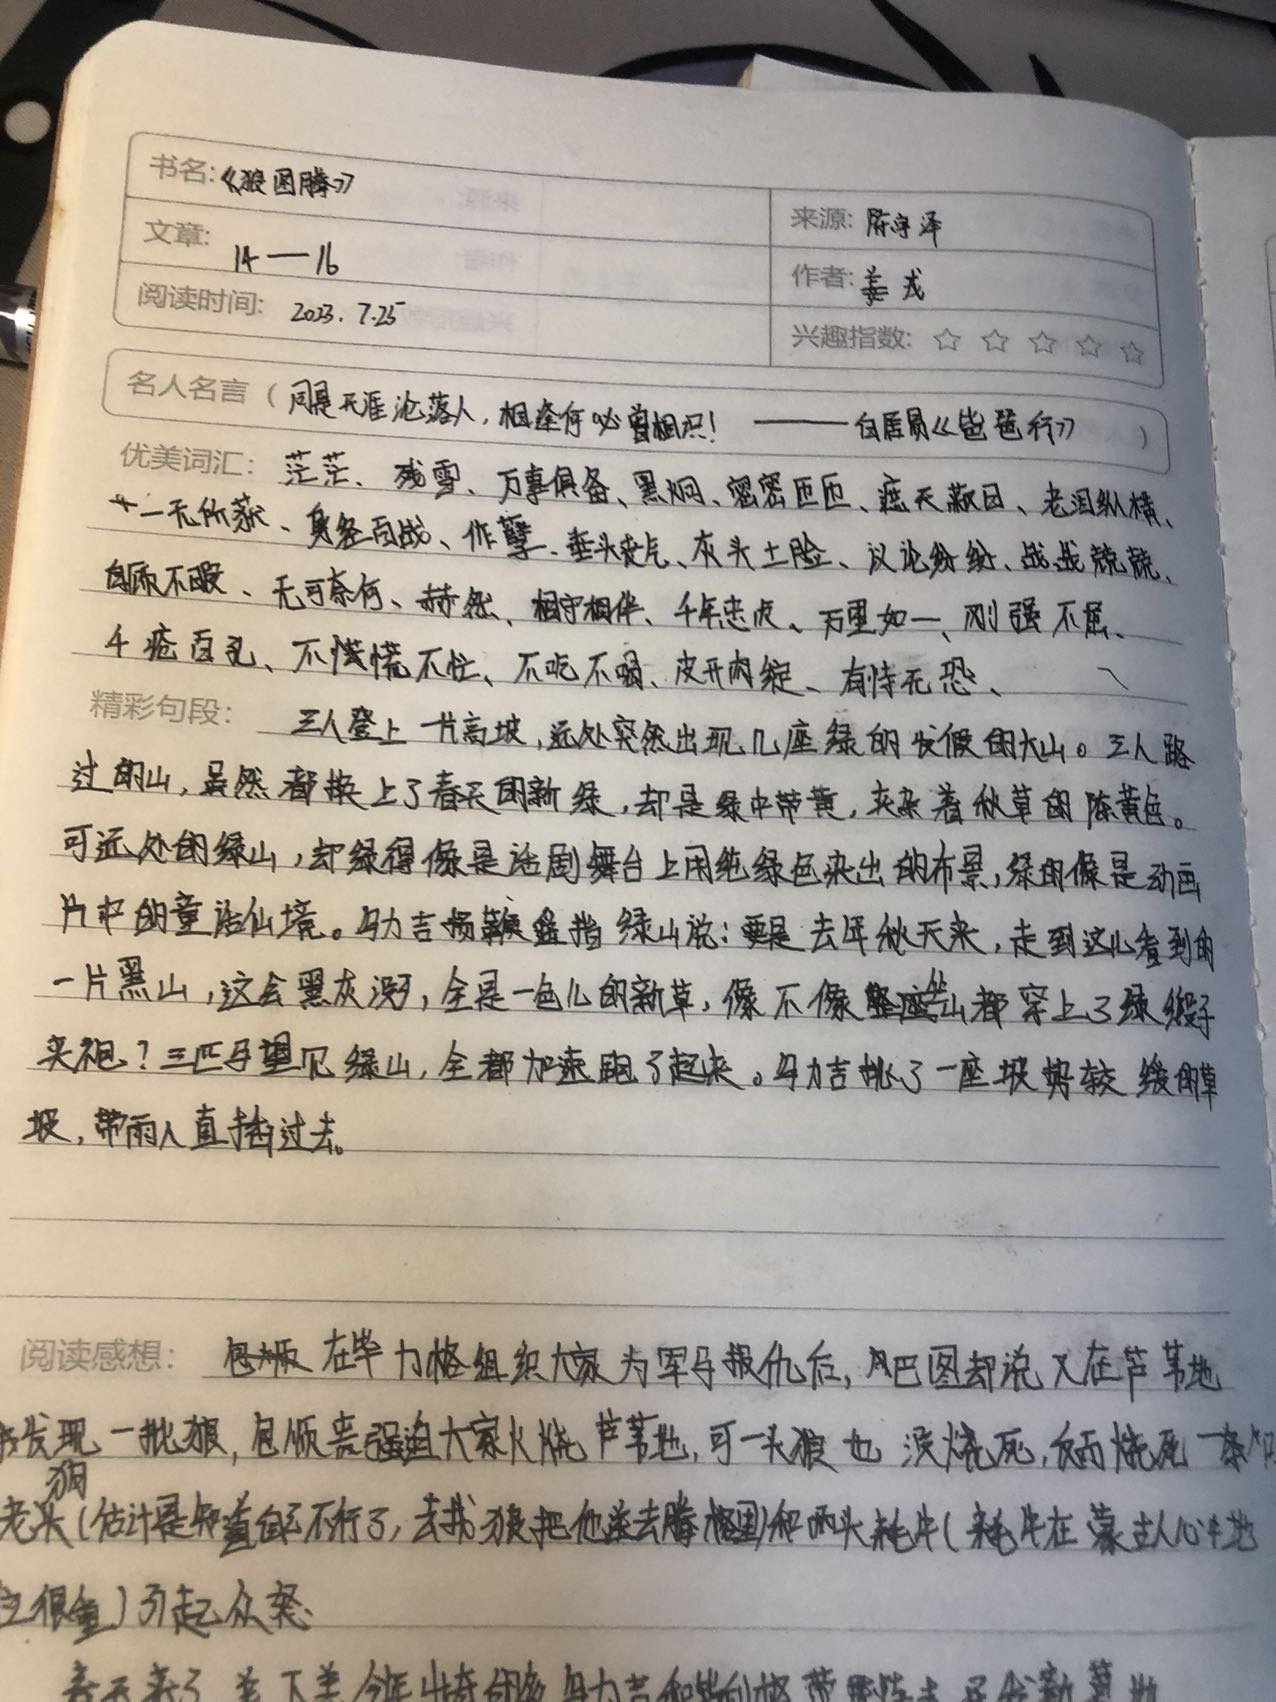 书名:《狼图腾》
来源: 陈宇泽
文章: 14—16
作者: 姜戎
阅读时间: 2023.7.25
兴趣指数: ☆ ☆ ☆ ☆ ☆
名人名言(同是天涯沦落人,相逢何必曾相识! ——白居易《琵琶行》)
优美词汇: 茫茫、残雪、万事俱备、黑焖、密密匝匝、遮天蔽日、老泪纵横、
一无所获、身经百战、作孽、垂头丧气、灰头土脸、议论纷纷、战战兢兢、
自顾不暇、无可奈何、赫然、相守相伴、千年忠虎、万里如一、刚强不屈、
千疮百孔、不慌不忙、不吃不喝、皮开肉绽、有恃无恐、
精彩句段: 三人登上一片高坡,远处突然出现几座绿的发假的大山。三人路
过的山,虽然都换上了春天的新绿,却是绿中带黄,夹杂着秋草的陈黄色。
可远处的绿山,却绿得像是话剧舞台上用纯绿色染出的布景,绿的像是动画
片中的童话仙境。乌力吉扬鞭遥指绿山说:要是去年秋天来,走到这儿看到的
一片黑山,这会黑灰没了,全是一色儿的新草,像不像整座山都穿上了绿缎子
夹袍?三匹马望见绿山,全都加速跑了起来。乌力吉挑了一座坡势较缓的草
坡,带两人直插过去。
阅读感想: 在毕力格组织大家为军马报仇后,巴图却说又在芦苇地
发现一批狼,包顺贵强迫大家火烧芦苇地,可一头狼也没烧死,反而烧死一条
老狗(估计是知道自己不行了,去找狼把他送去腾格里)和两头牦牛(牦牛在蒙古人心中地
位很重)引起众怒.